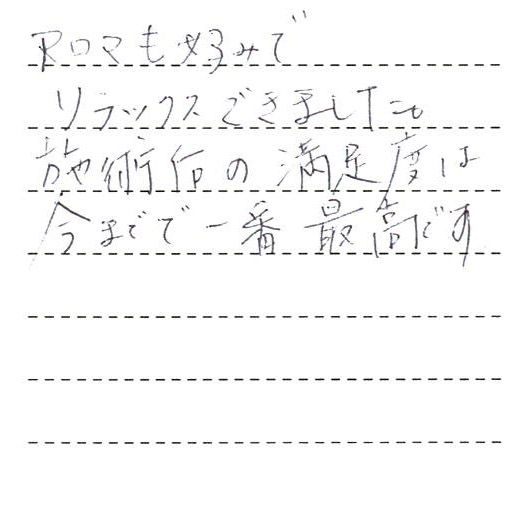 アロマも好みで
リラックスできました。
施術后の満足度は
今までで一番最高です